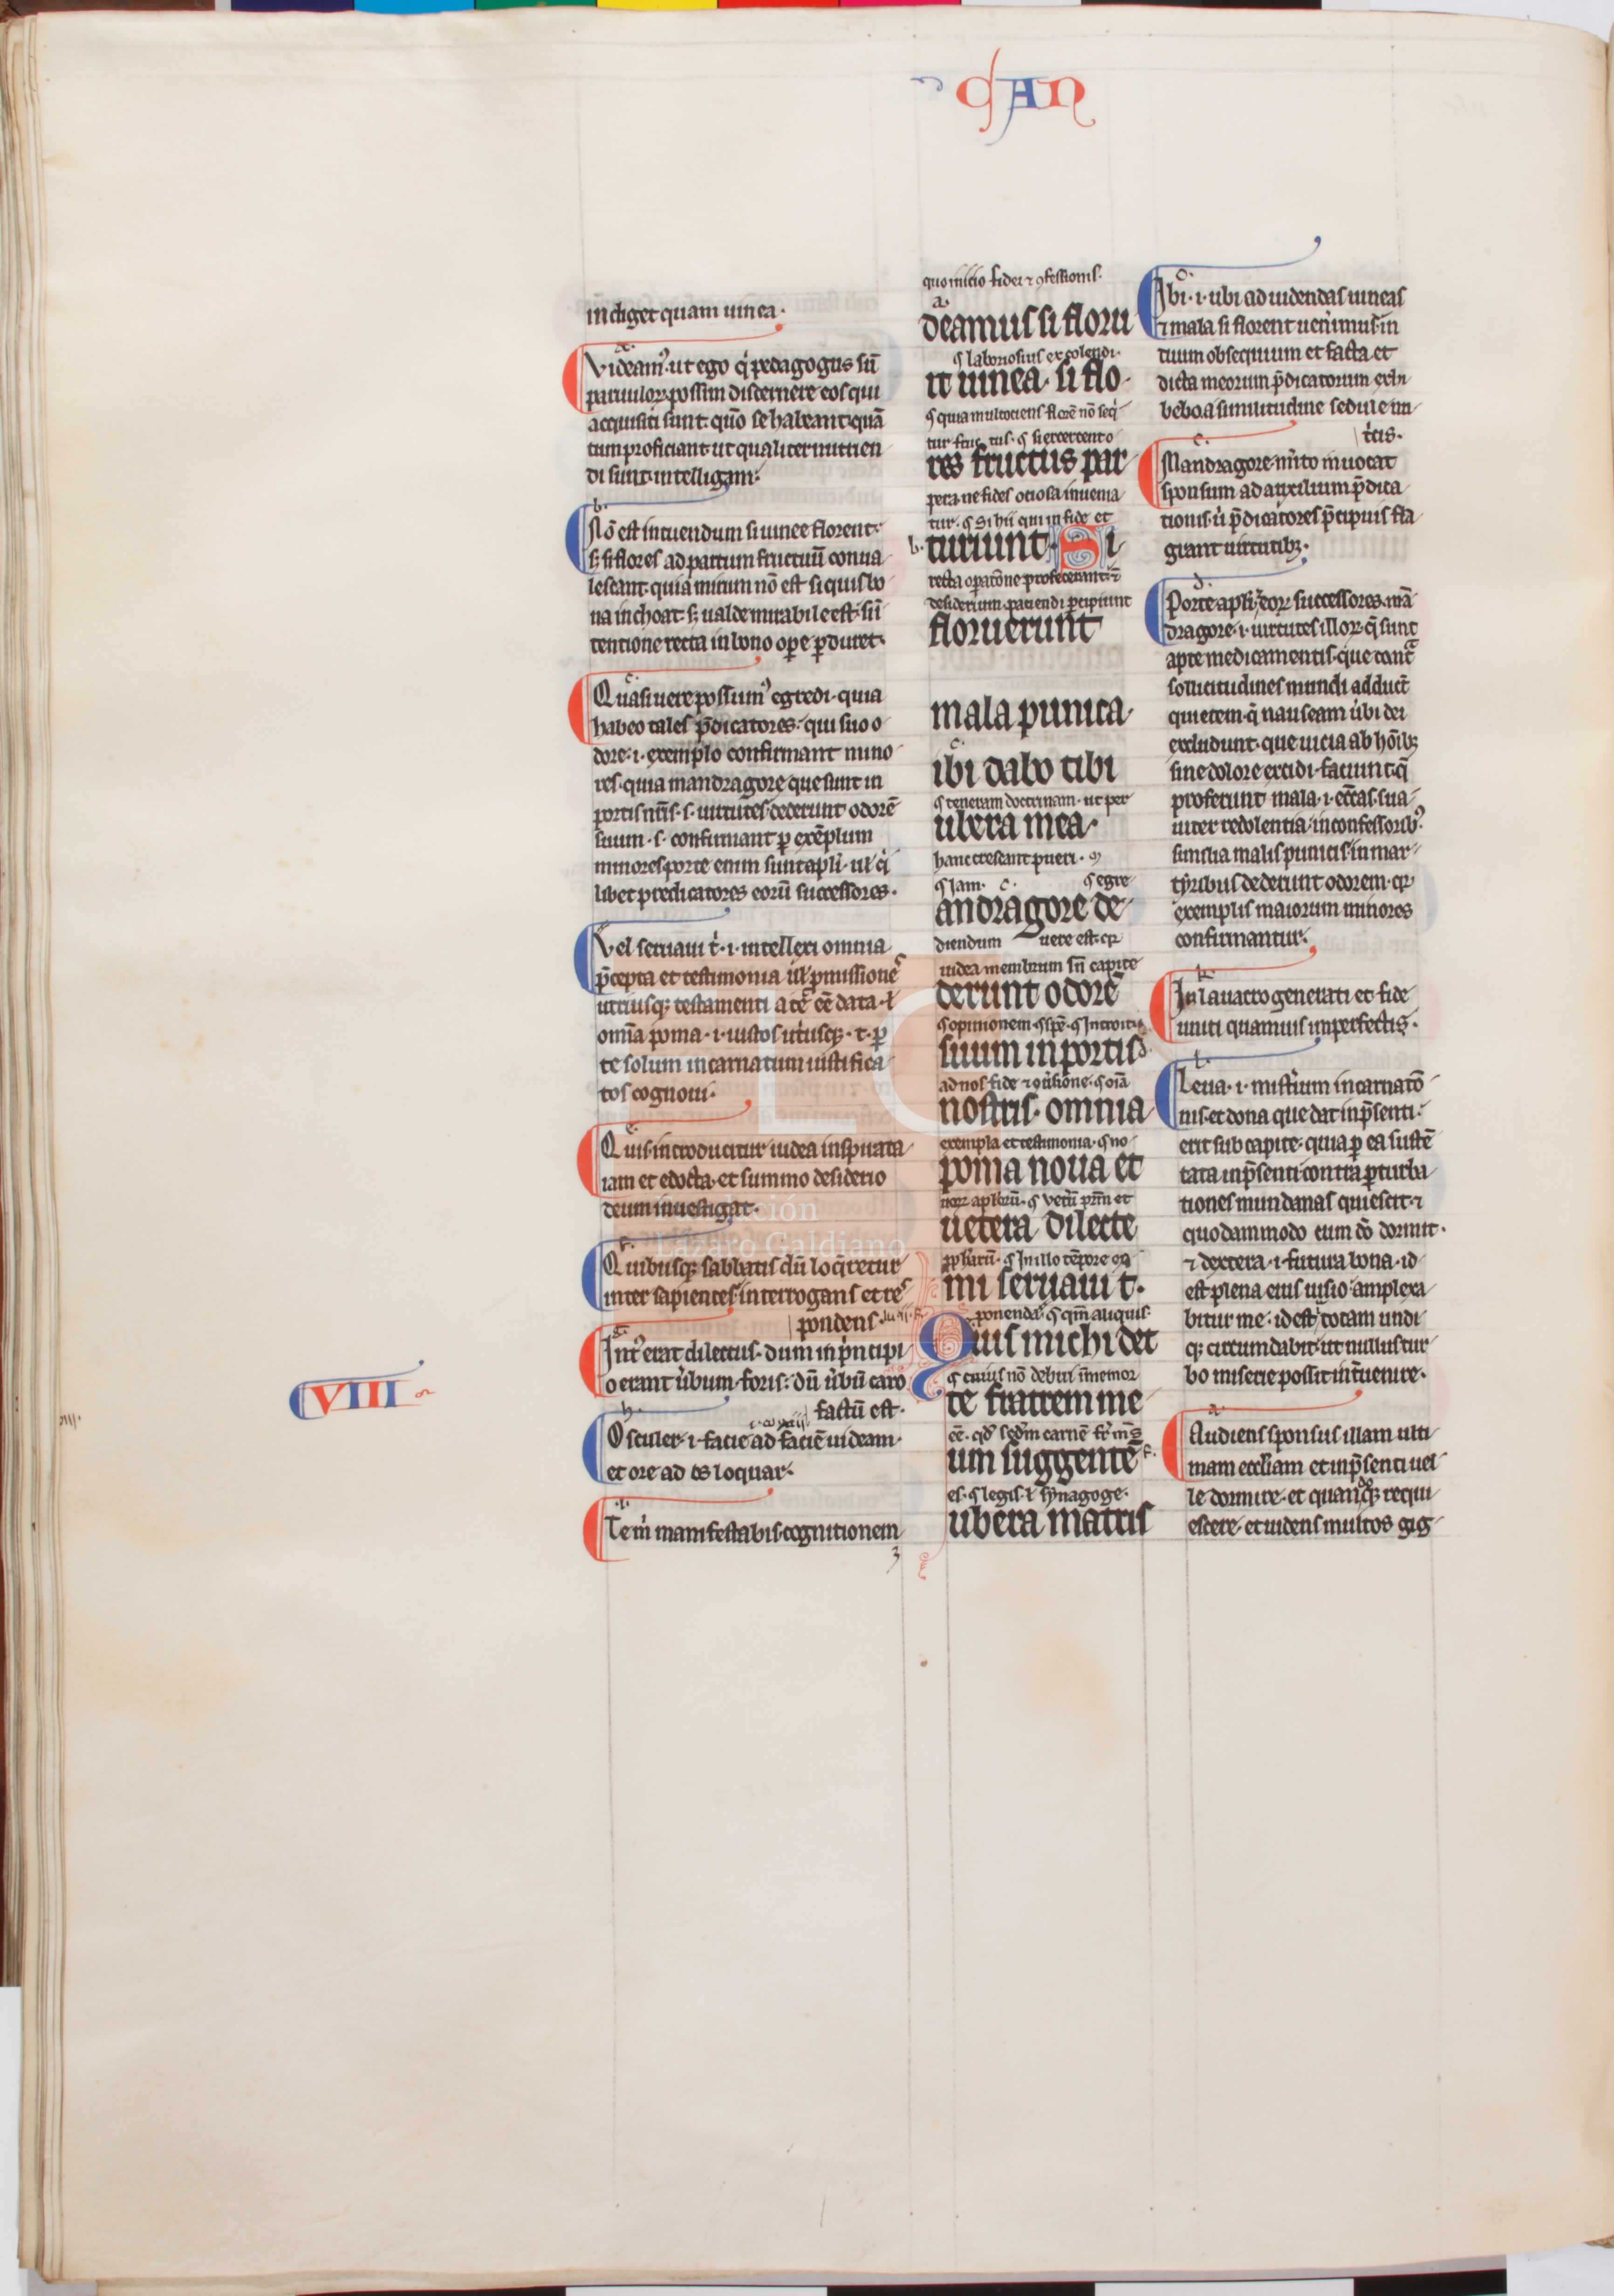 CAN
indiget quam uinea.
a.
Videam9. ut ego q̇ pedagogus sū
paruuloꝝ possim discernere eos qui
acquisiti sunt. quō se habeant. quā
tum proficiant. ut qualiter nutrien
di sunt. intelligam.
b.
Nō est intuendum si uinee florent.
s; si flores ad partum fructuū conua
lescant. quia mirum nō est si quis bo
na inchoat. s; ualde mirabile est. si ī
tentione recta in bono ope ꝑduret.
c.
Quasi uere possum9 egredi. quia
habeo tales p̄dicatores. qui suo o
dore .i. exemplo confirmant mino
res. quia mandragore que sunt in
portis nr̄is .s. uirtutes. dederunt odorē
suum .s. confirmant ꝑ exēplum
minores. porte enim sunt apl̄i. ul̄ q̇
libet predicatores eorū successores.
Vel seruaui t̉. .i. intellexi omnia
p̄cepta et testimonia ul̄ ꝓmissiones
utriusq; testamenti a te eē data. ł
omīa poma .i. iustos utriusq; .t. ꝑ
te solum incarnatum iustifica
tos cognoui.
e.
Quis. introducitur iudea inspirata
iam et edocta. et summo desiderio
deum inuestigat.
f.
Quibusq; sabbatis dū loq̄retur
inter sapientes. interrogans et res
pondens.
g.
Int9 erat dilectus. dum in p̉ncipi
o erant u̇bum. foris. dū u̇bū caro
factū est.
h.
Osculer .i. facie ad faciē uideam.
et ore ad os loquar.
i.
Tem̉ manifestabis. cognitionem
VIII
quo initio fidei ⁊ ꝯfessionis.
a.
deamus si floru
laboriosius excolendi.
it uinea. si flo
quia multociens florē nō seq̇
tur fructus. si exercent o
res fructus par
pera. ne fides ociosa inuenia
tur. Si hii qui in fide et
b. turiunt. Si
recta oꝑatōne profecerunt. ⁊
desiderium patiendi ꝑcipiunt
floruerunt
mala punica.
c.
ibi dabo tibi
teneram doctrinam. ut per
ubera mea.
hanc crescant pueri. M
Jam. c. egre
andragore de
diendum uere est. qꝛ
iudea membrum sn̄ capite
derunt odorē
opinionem. spē. Introitū
suum in portis d.
ad nos fide ⁊ ꝯu̇sione. oīa
nostris. omnia
exempla et testimonia. no
poma noua et
uoꝝ apl̄oꝝ. Vetū pr̄m et
uetera dilecte
ꝓph̄arū. In illo tēpore
mi seruaui t.
ponenda. qm̄ aliquis.
Quis michi det
cuius nō debui īmemor
te fratrem me
eē. qd̄ scd̄m carnē fr̄ m̄s
um suggentē f.
es. legis. ł synagoge.
ubera matris
c.
Ibi .i. ubi ad uidendas uineas
⁊ mala si florent uenimus. in
tuum obsequium et facta et
dicta meorum p̄dicatorum exhi
bebo. a similitudine sedule nu
t̉cis.
e.
Mandragore. m̉ito inuocat
sponsum ad auxilium p̄dica
tionis. u̇ p̄dicatores p̄cipuis fla
grant uirtutib;.
d.
Porte apl̄i. ⁊ eoꝝ successores. mā
dragore .i. uirtutes illoꝝ. q̄ sunt
apte medicamentis. que cont̄
sollicitudines mundi adducūt
quietem. q̄ nauseam u̇bi dei
excludunt. que uicia ab hōib;
sine dolore excidi faciunt. q̄
proferunt mala .i. ecc̄as. sua
uiter redolentia. in confessorib9.
similia malis punicis. in mar
tyribus dederunt odorem. qꝛ
exemplis maiorum minores
confirmantur.
k.
In lauacro generati et fide
uniti quamuis imperfectis.
l.
Leua .i. mist̉ium incarnatō
nis. et dona que dat in p̄senti.
erit sub capite. quia ꝑ ea sustē
tata in p̄senti contra ꝑturba
tiones mundanas quiescit. ⁊
quodammodo eum do dormit.
⁊ dextera .i. futura bona. id
est plena eius uisio. amplexa
bitur me. id est. totam undi
q; circumdabit. ut nullus tur
bo miserie possit inuenire.
a.
Audiens sponsus illam ulti
mam ecc̄liam et in p̄senti uel
le dormire. et quandoq; requi
escere. et uidens multos gig
Fundación
Lázaro Galdiano